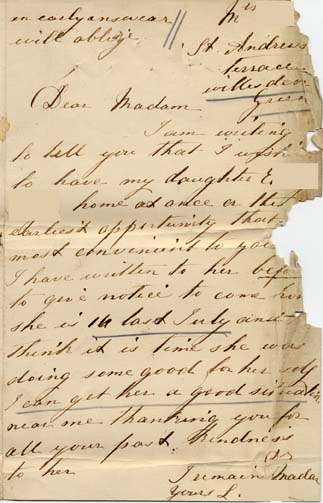 an early answear
will oblige
St Andrews
Terrace
Willesden
Green
Dear Madam
I am writing
to tell you that I wish
to have my daughter E.
home at once or the
earliest opportunity that
most convinient to you
I have written to her before
to give notice to come home
she is 16 last July and
think it is time she was
doing some good for her self
I can get her a good situation
near me thanking you for
all your past kindness
to her
I remain Madam
Yours L.